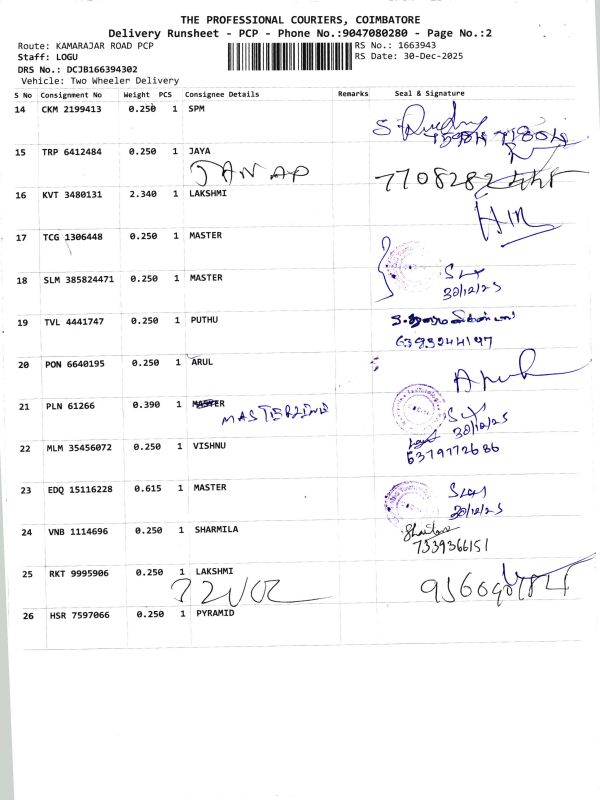 THE PROFESSIONAL COURIERS, COIMBATORE
Delivery Runsheet - PCP - Phone No.:9047080280 - Page No.:2
Route: KAMARAJAR ROAD PCP RS No.: 1663943
Staff: LOGU RS Date: 30-Dec-2025
DRS No.: DCJB166394302
Vehicle: Two Wheeler Delivery
S No Consignment No Weight PCS Consignee Details Remarks Seal & Signature
14 CKM 2199413 0.250 1 SPM
15 TRP 6412484 0.250 1 JAYA
16 KVT 3480131 2.340 1 LAKSHMI
17 TCG 1306448 0.250 1 MASTER
18 SLM 385824471 0.250 1 MASTER
30/12/25
19 TVL 4441747 0.250 1 PUTHU
6393244147
20 PON 6640195 0.250 1 ARUL
21 PLN 61266 0.390 1 MASTER
30/12/25
22 MLM 35456072 0.250 1 VISHNU
6379772686
23 EDQ 15116228 0.615 1 MASTER
30/12/25
24 VNB 1114696 0.250 1 SHARMILA
7339366151
25 RKT 9995906 0.250 1 LAKSHMI
26 HSR 7597066 0.250 1 PYRAMID